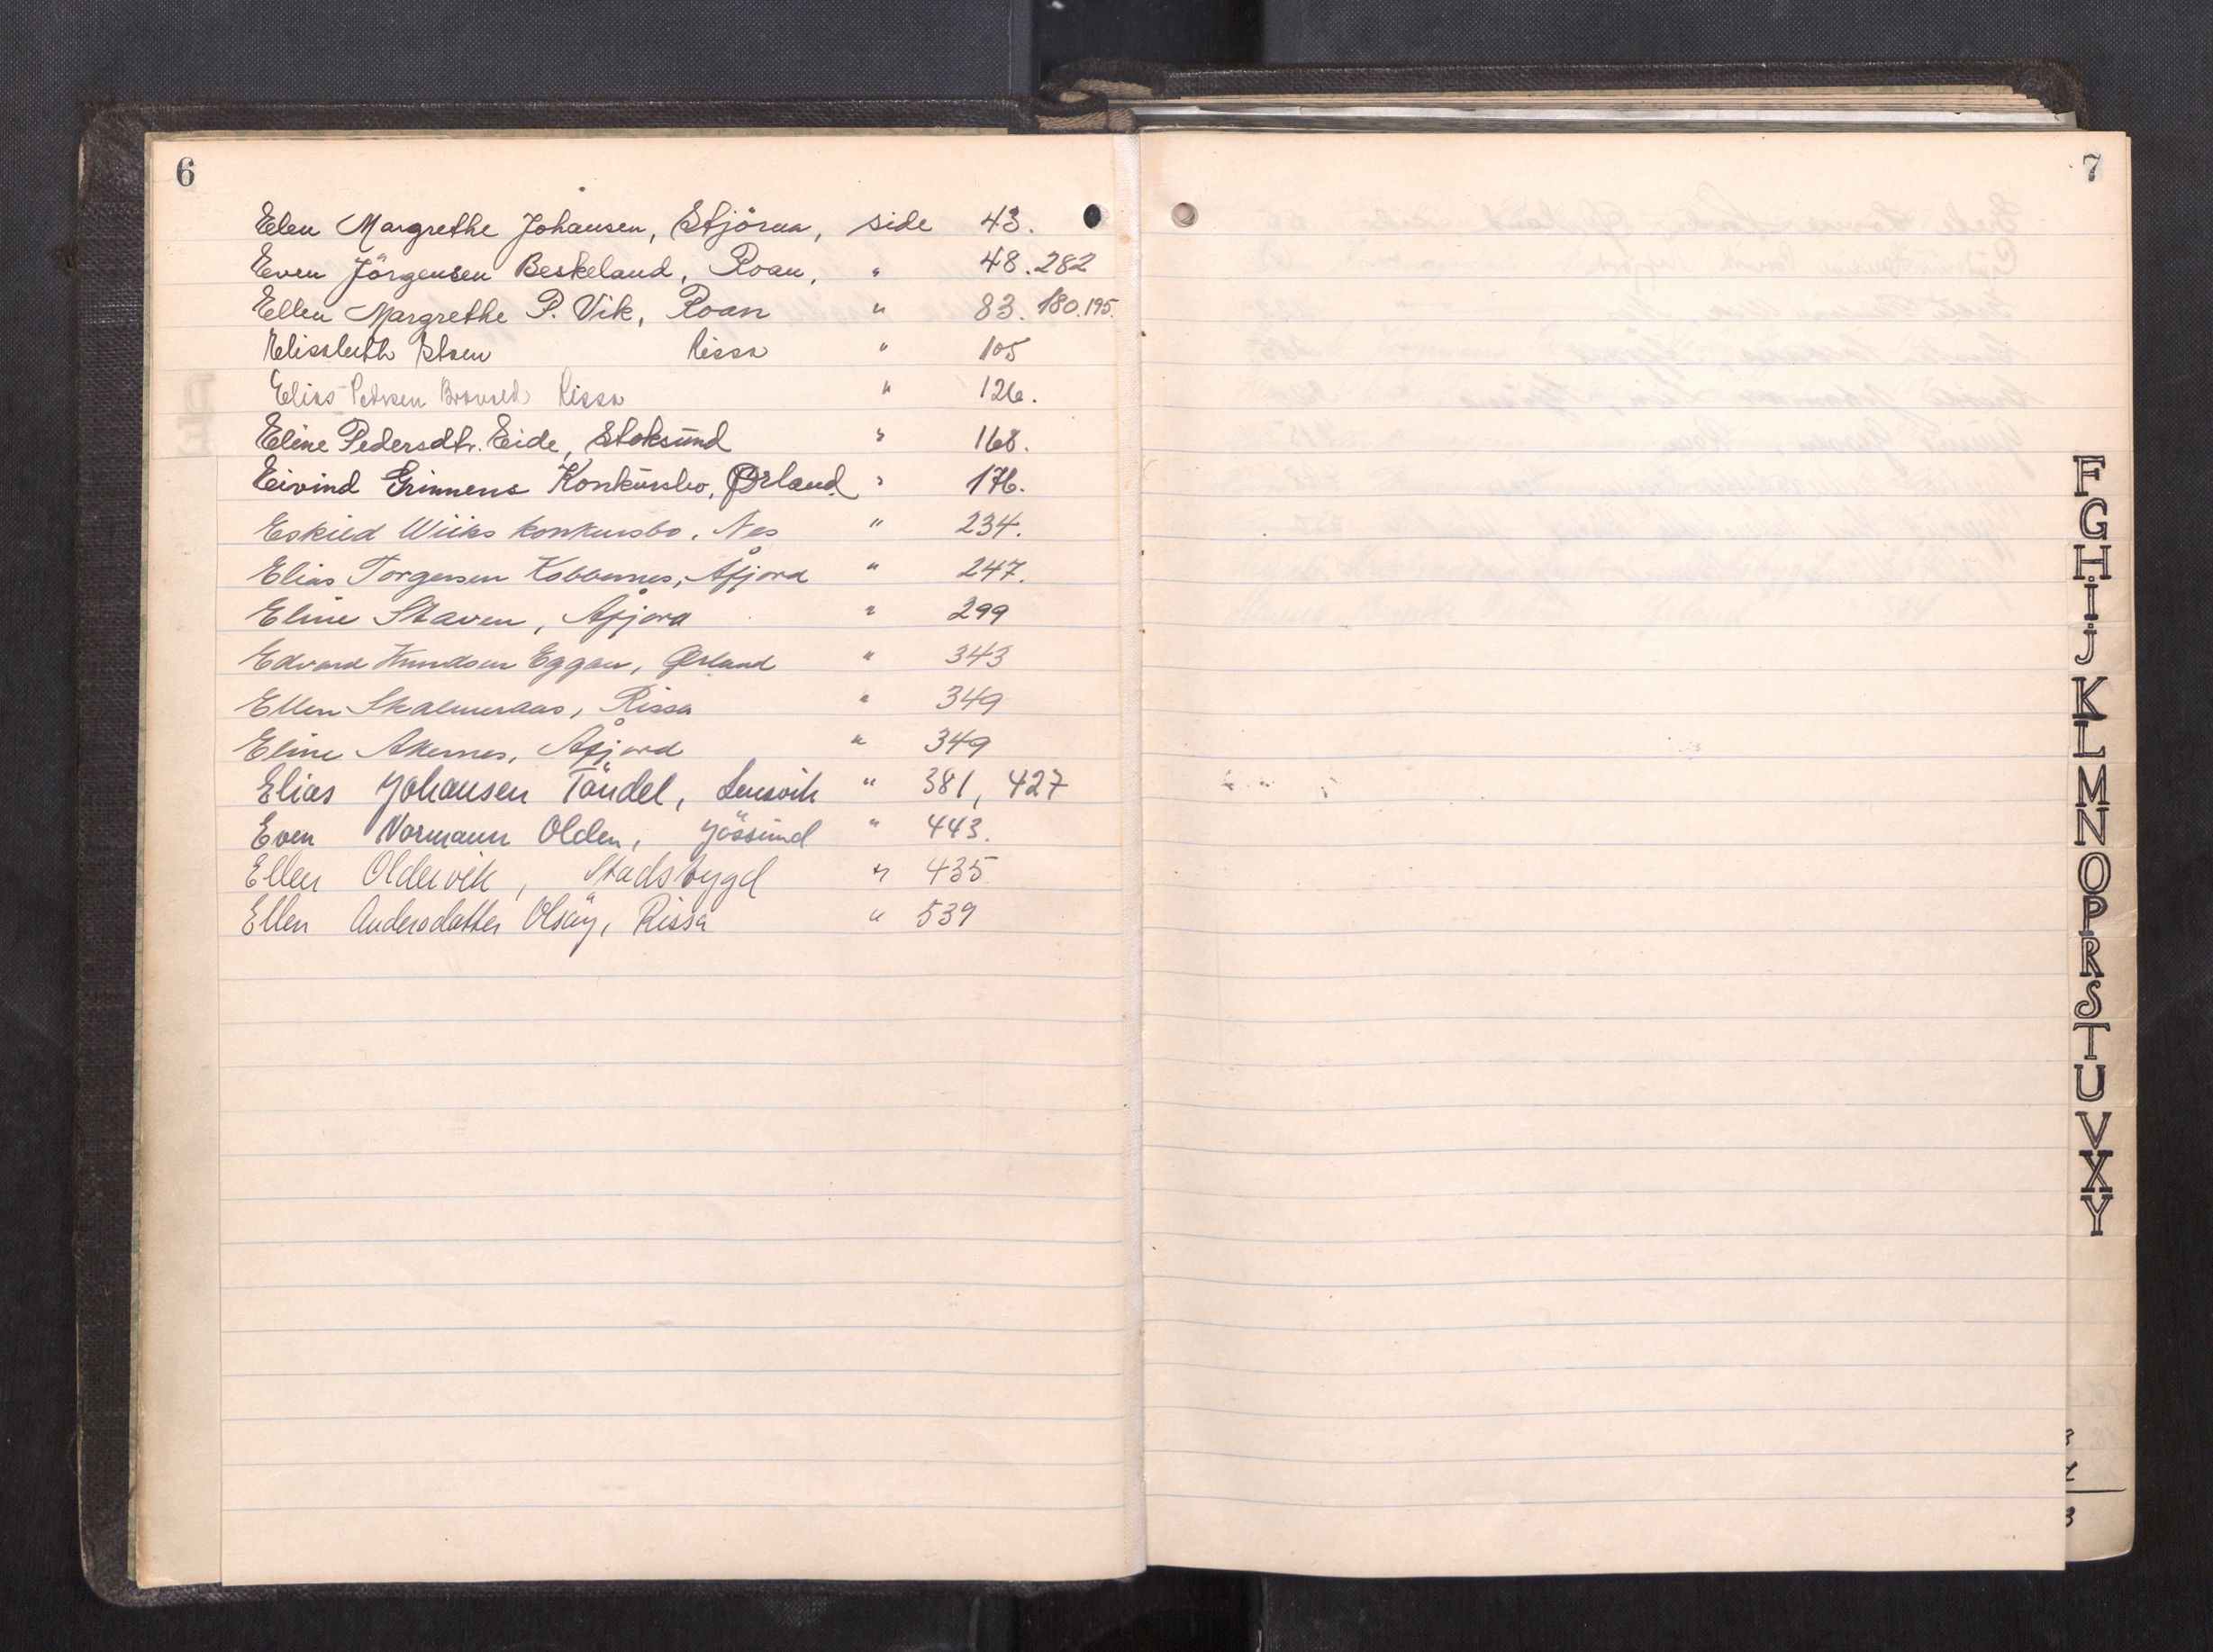 6
Elen Margrethe Johansen, Stjörna, side 43.
Even Jörgensen Beskeland, Roan, " 48. 282
Ellen Margrethe P. Vik, Roan " 83. 180. 195.
Elisabeth Staen Rissa " 105
Elias Pedersen Rissa " 126.
Eline Pedersdtr. Eide, Stoksund " 168.
Eivind Grinnens Konkursbo, Ørland " 176.
Eskild Wiiks konkursbo, Nes " 234.
Elias Torgersen Kobbernes, Åfjord " 247.
Eline Staven, Åfjord " 299
Edvard Knudsen Eggan, Ørland " 343
Ellen Skalmeraas, Rissa " 349
Eline Akernes, Åfjord " 349
Elias Johansen Tøndel, Lensvik " 381, 427
Even Normann Olden, Jössund " 443.
Ellen Oldervik, Stadsbygd " 435
Ellen Andersdatter Olsöy, Rissa " 539
7
F
G
H
I
J
K
L
M
N
O
P
R
S
T
U
V
X
Y